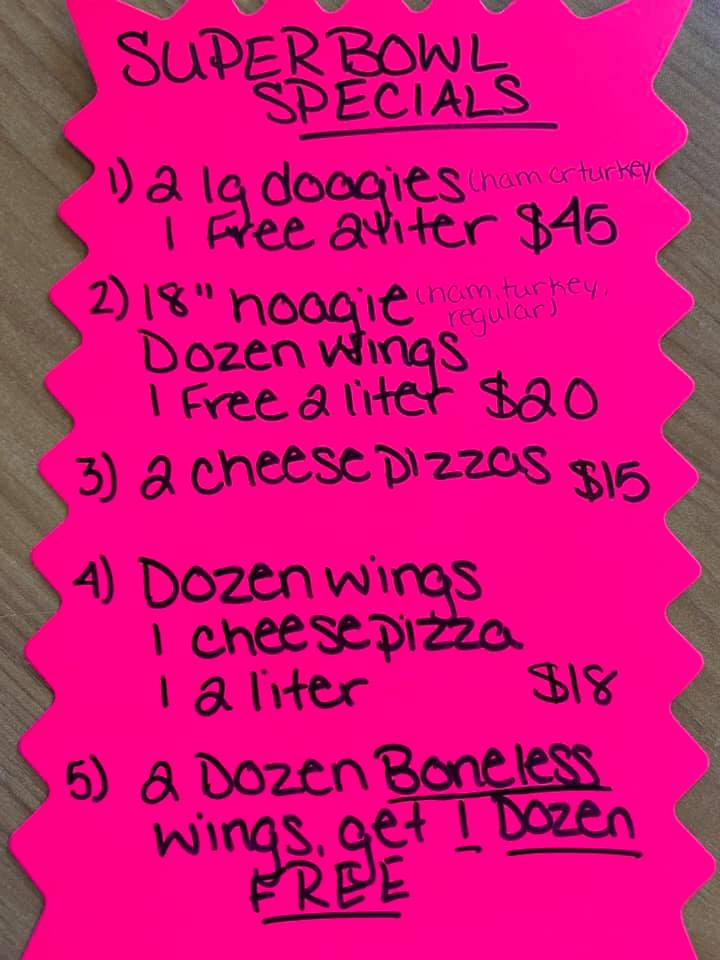 SUPER BOWL
SPECIALS
1) 2 lg doogies (ham or turkey
1 Free 2 liter $45
2) 18" hoagie (ham, turkey,
regular)
Dozen wings
1 Free 2 liter $20
3) 2 cheese pizzas $15
4) Dozen wings
1 cheese pizza
1 2 liter $18
5) 2 Dozen Boneless
wings, get 1 Dozen
FREE